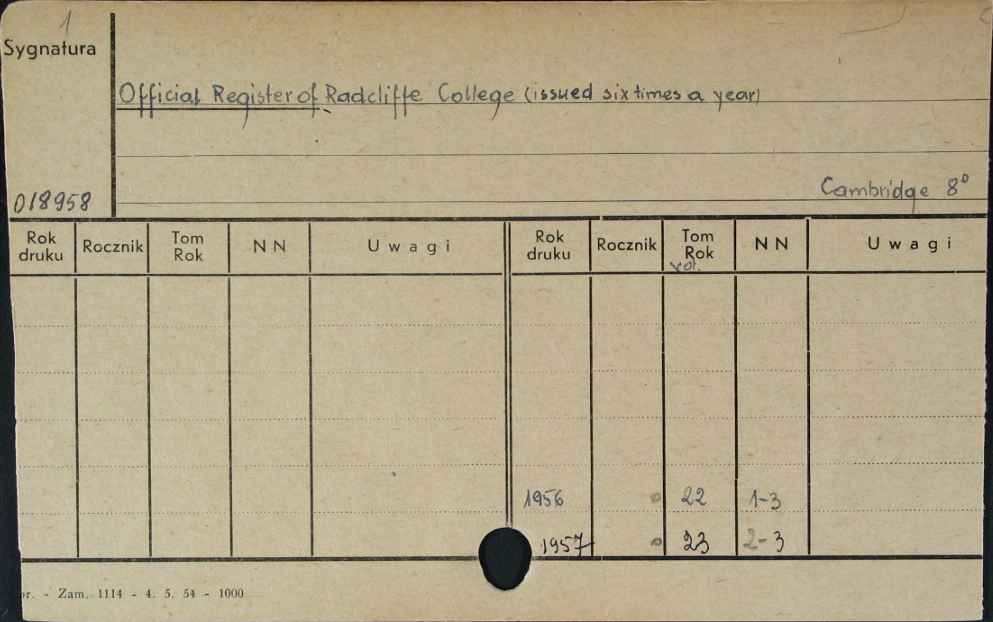 1
Sygnatura
Official Register of Radcliffe College (issued six times a year)
Cambridge 8°
018958
Rok druku Rocznik Tom Rok NN Uwagi Rok druku Rocznik Tom Rok vol. NN Uwagi
1956 0 22 1-3
1957 0 23 2-3
r. - Zam. 1114 - 4. 5. 54 - 1000